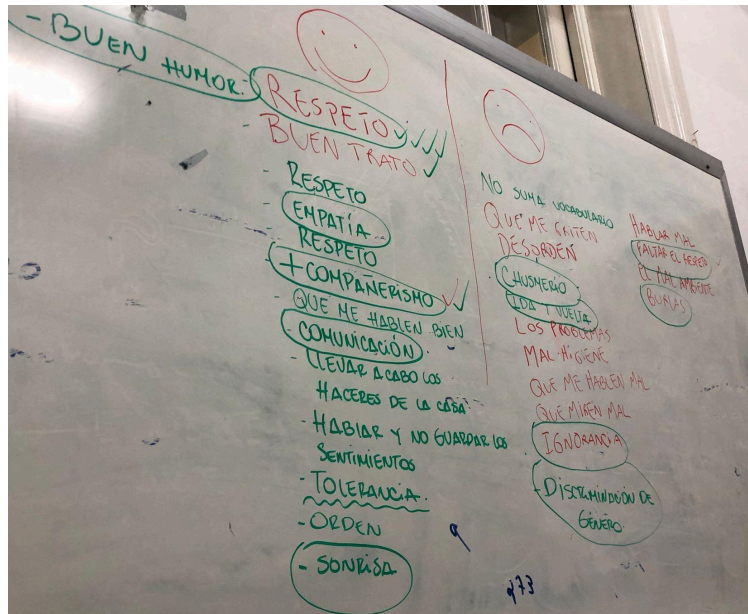 - BUEN HUMOR.
RESPETO
- BUEN TRATO
- RESPETO
- EMPATÍA
RESPETO
- + COMPAÑERISMO
- QUE ME HABLEN BIEN
- COMUNICACIÓN.
- LLEVAR A CABO LOS
HACERES DE LA CASA
- HABLAR Y NO GUARDAR LOS
SENTIMIENTOS
- TOLERANCIA.
- ORDEN
- SONRISA
NO SUMA VOCABULARIO
QUE ME GRITEN
DESORDEN
CHUSMERIO
IDA Y VUELTA
LOS PROBLEMAS
MAL HIGIENE
QUE ME HABLEN MAL
QUE MIREN MAL
IGNORANCIA
- DISCRIMINACIÓN DE
GÉNERO
HABLAR MAL
FALTAR EL RESPETO
EL MAL AMBIENTE
BURLAS
273